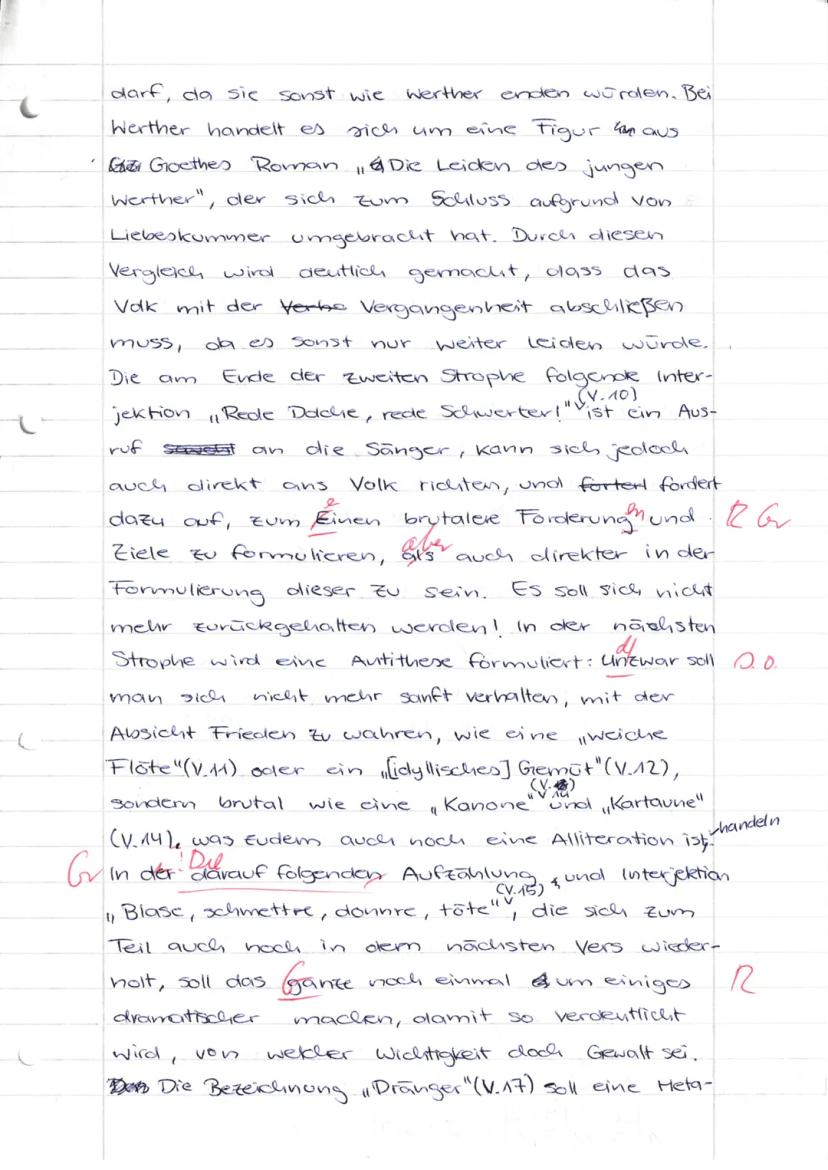 darf, da sie sonst wie Werther enden würden. Bei
Werther handelt es sich um eine Figur aus
Goethes Roman „Die Leiden des jungen
Werther", der sich zum Schluss aufgrund von
Liebeskummer umgebracht hat. Durch diesen
Vergleich wird deutlich gemacht, dass das
Volk mit der Verbe Vergangenheit abschließen
muss, da es sonst nur weiter leiden würde.
Die am Ende der zweiten Strophe folgende Inter-
(V.10)
jektion „Rede Dolche, rede Schwerter!" ist ein Aus-
ruf an die Sänger, kann sich jedoch
auch direkt ans Volk richten, und fordert
e
dazu auf, zum Einen brutalere Forderung en und R Gr
aber
Ziele zu formulieren, als auch direkter in der
Formulierung dieser zu sein. Es soll sich nicht
mehr zurückgehalten werden! In der nächsten
d
Strophe wird eine Antithese formuliert: Und zwar soll
man sich nicht mehr sanft verhalten, mit der
Absicht Frieden zu wahren, wie eine „weiche
Flöte"(V.11) oder ein „[idyllisches] Gemüt"(V.12),
sondern brutal wie eine „Kanone" und „Kartaune"
(V.14), was zudem auch noch eine Alliteration ist, handeln
! Die
Gr In der darauf folgenden Aufzählung und Interjektion
(V.15)
„Blase, schmettre, donnre, töte", die sich zum
Teil auch noch in dem nächsten Vers wieder-
holt, soll das Ganze noch einmal um einiges R
dramatischer machen, damit so verdeutlicht
wird, von welcher Wichtigkeit doch Gewalt sei.
Die Bezeichnung „Dränger"(V.17) soll eine Meta-